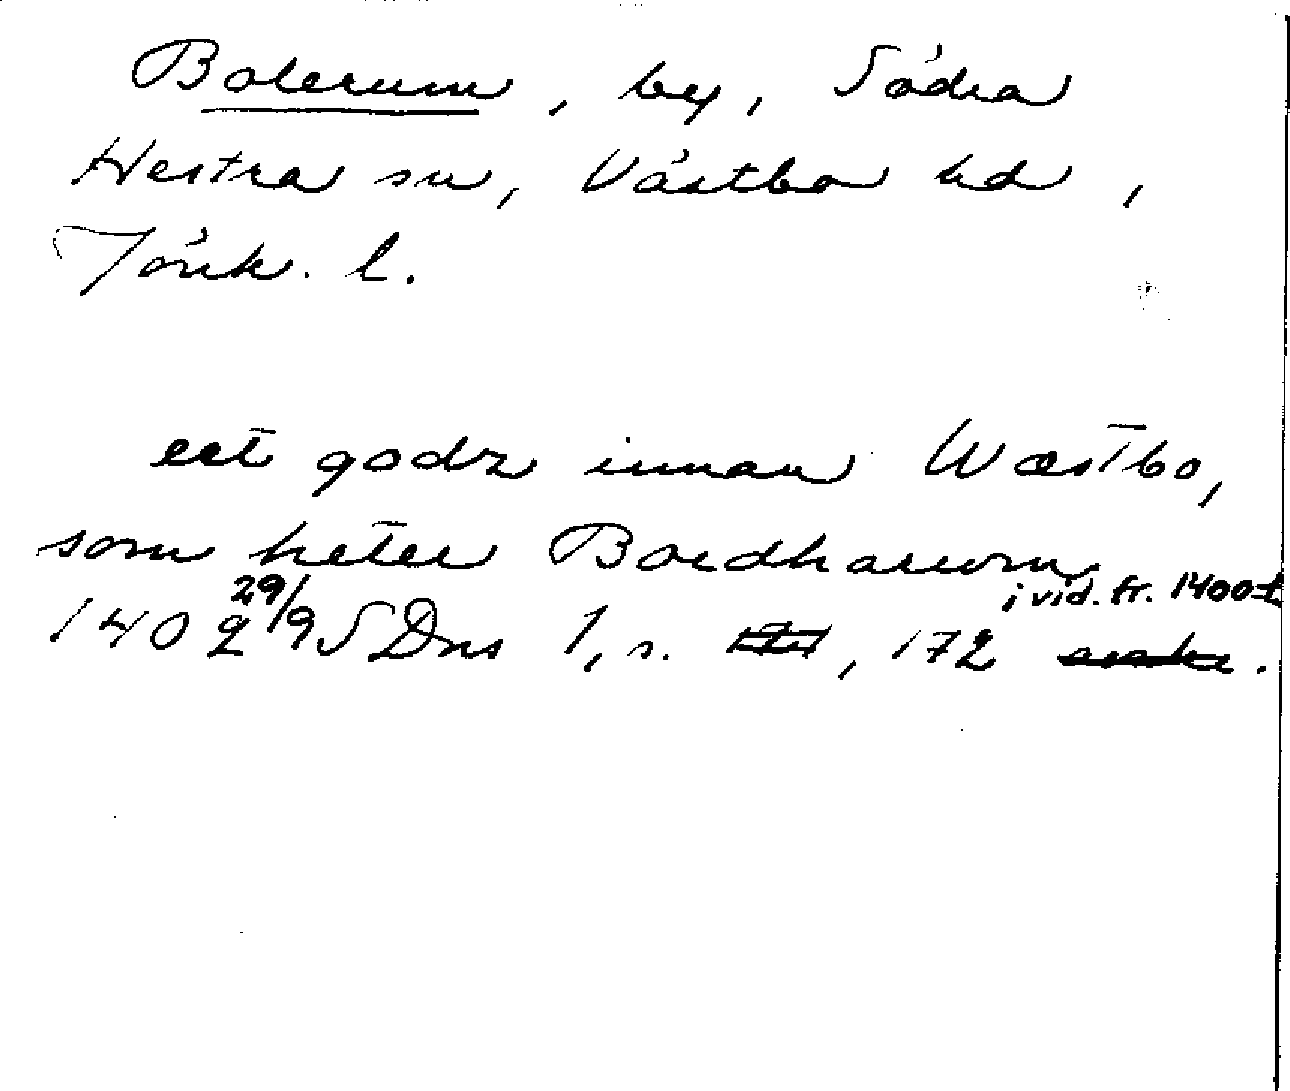 Bolerum, by, Södra
Hestra sn, Västbo hd,
Jönk. l.
eet godz innan Wæstbo,
som heter Bordharwm
i vid. fr. 1400-t.
1402 29/9 SDns 1, s. , 172 .